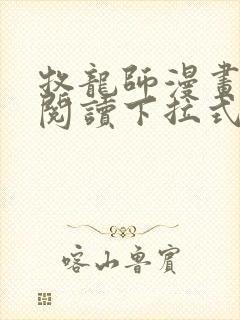 牧龍師漫畫
閱讀下拉式
喀山魯賓